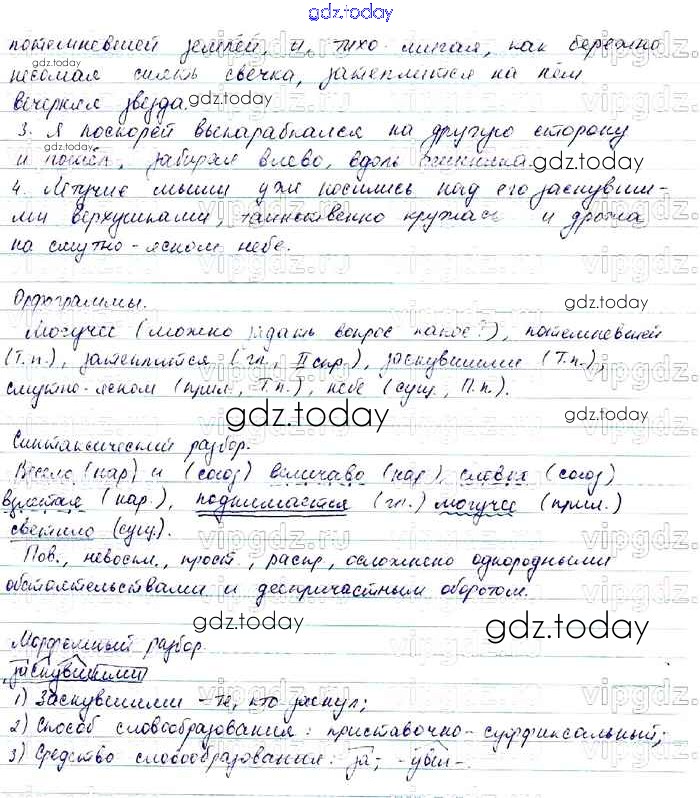 gdz.today
потемневшей землей, и, тихо мигая, как бережно
несомая сиять свечка, затеплится на нём
вечерняя звезда.
gdz.today
3. Я поскорей выкарабкался на другую сторону
и пошёл, забирая влево, вдоль
gdz.today
4. Летучие мыши уже носились над его заснувши-
ми верхушками, таинственно кружась и дрожа
на смутно-ясном небе.
gdz.today
Орфограммы.
Могучее (можно задать вопрос какое?), потемневшей
(Т.п.), затеплится (гл., II спр.), заснувшими (Т.п.),
смутно-ясном (прил., Т.п.), небе (сущ., П.п.).
gdz.today
gdz.today
Синтаксический разбор.
Весело (нар) и (союз) величаво (нар), словно (союз)
взлетая (нар.), поднимается (гл.) могучее (прил.)
светило (сущ.).
Пов., невоскл., прост., распр., осложнено однородными
обстоятельствами и деепричастным оборотом.
gdz.today
gdz.today
Морфемный разбор.
заснувшими
1) Заснувшими – те, кто заснул;
2) Способ словообразования: приставочно-суффиксальный;
3) Средство словообразования: за-, -увш-.
vipgdz.ru